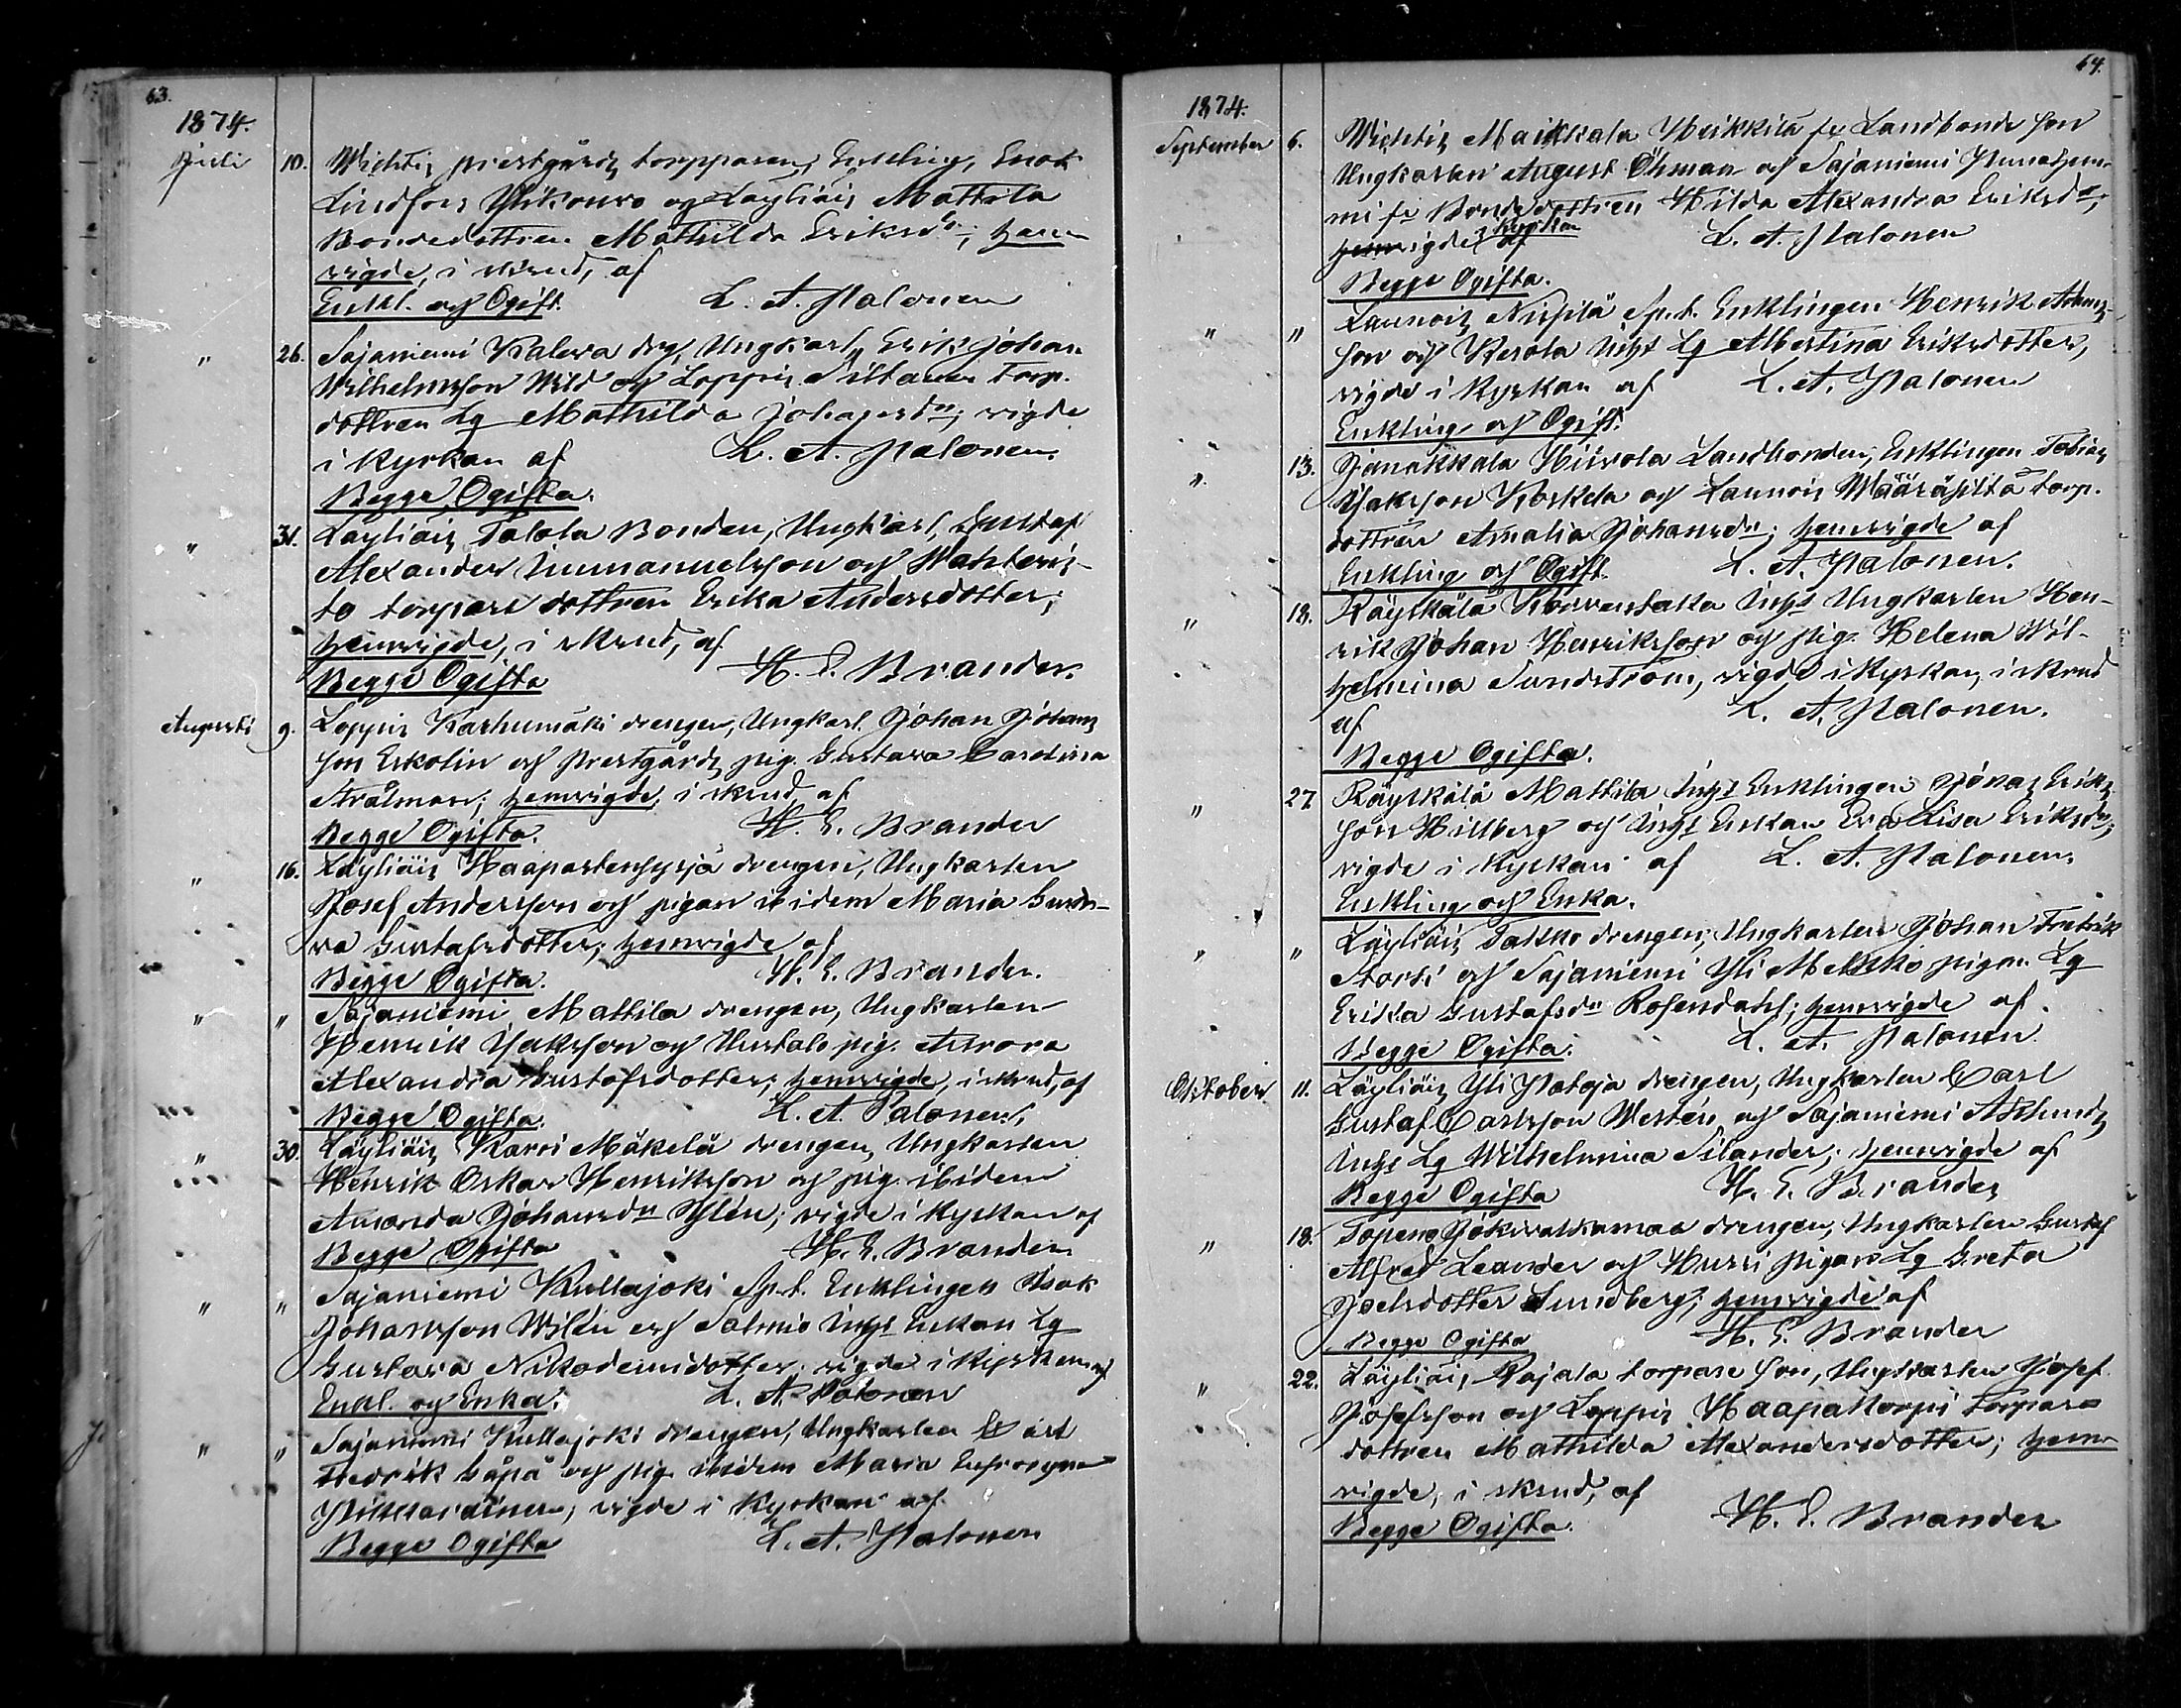 63.
1874.
Juli 10. Wichtis prestgårds torpparen, Enkling, Enok
Lindfors och Läyliäis Mattila
Bondedottren Mathilda Eriksdr; hem-
vigde, i skrud, af
Enkl. och Ogift. L. A. Palonen
" 26. Sajaniemi Kalewa drg, Ungkarl, Erik Johan
Wilhelmsson Wild och Loppis Torp.
dottren Lg Mathilda Johansdr; vigde
i kyrkan af L. A. Palonen.
Begge Ogifta.
" 31. Läyliäis Talola Bonden, Ungkarl, Gustaf
Alexander Immanuelsson och Wahteris-
to torpare dottren Erika Andersdotter;
hemvigde, i skrud, af
Begge Ogifta H. E. Brander.
Augusti 9. Loppis Karhumäki drengen, Ungkarl. Johan Johans
son Eskolin och Prestgårds pig. Gustava Carolina
Strålman; hemvigde, i skrud af
Begge Ogifta. H. E. Brander
" 16. Läyliäis drengen, Ungkarlen
Josef Andersson och pigan ibidem Maria Gusta-
va Gustafsdotter; hemvigde af
Begge Ogifta. H. E. Brander.
" " Sajaniemi Mattila drengen, Ungkarlen
Henrik Isaksson och pig. Aurora
Alexandra Gustafsdotter; hemvigde, i skrud, af
Begge Ogifta. L. A. Palonen.
" 30. Läyliäis Karri Mäkelä drengen, Ungkarlen
Henrik Oskar Henriksson och pig. ibidem
Amanda Johansdr; vigde i kyrkan af
Begge Ogifta H. E. Brander
" " Sajaniemi Kullajoki Sp.t. Enklingen Isak
Johansson Wilén och Salmis Inhs Enkan Lg
Gustava Nikodemidotter; vigde i kyrkan af
Enkl. och Enka. L. A. Palonen
" " Sajaniemi Kullajoki drengen, Ungkarlen
Fredrik och pig. ibidem Maria Eufrosyna
vigde i kyrkan af
Begge Ogifta L. A. Palonen
64.
1874.
September 6. Wichtis Maikkala Heikkilä Landbonde son
Ungkarlen August Öhman och Sajaniemi
Bondedottren Hilda Alexandra Eriksdr,
vigde i kyrkan af L. A. Palonen
Begge Ogifta.
" " Launois Sp.t. Enklingen Henrik Adams-
son och Kerola Inhs Lg Albertina Eriksdotter,
vigde i kyrkan af L. A. Palonen
Enkling och Ogift.
" 13. Janakkala Hiivola Landbonden, Enklingen Tobias
Isaksson Koskela och Launois torp.
dottren Amalia Johansdr; hemvigde af
Enkling och Ogift. L. A. Palonen.
" 18. Räyskälä Inhs Ungkarlen Hen-
rik Johan Henriksson och pig. Helena Wil-
helmina Sundström, vigde i kyrkan, i skrud
af L. A. Palonen.
Begge Ogifta.
" 27 Räyskälä Mattila Inhs Enklingen Jonas Eriks
son Hillberg och Inhs Enkan Eva Lisa Eriksdr;
vigde i kyrkan af L. A. Palonen
Enkling och Enka.
" " Läyliäis drengen, Ungkarlen Johan Fredrik
och Sajaniemi Yli pigan Lg
Erika Gustafsdr Rosendahl; hemvigde af
Begge Ogifta. L. A. Palonen
Oktober 11. Läyliäis Yli drengen, Ungkarlen Carl
Gustaf Carlsson Westén och Sajaniemi
Inhs Lg Wilhelmina Silander; hemvigde af
Begge Ogifta H. E. Brander
" 18. Topeno drengen, Ungkarlen Gustaf
Alfred Leander och pigan Lg Greta
Joelsdotter Sundberg; hemvigde af
Begge Ogifta H. E. Brander
" 22. Läyliäis Rajala torpare son, Ungkarlen Josef
Josefsson och Loppis Torpare
dottren Mathilda Alexandersdotter; hem-
vigde, i skrud, af
Begge Ogifta. H. E. Brander